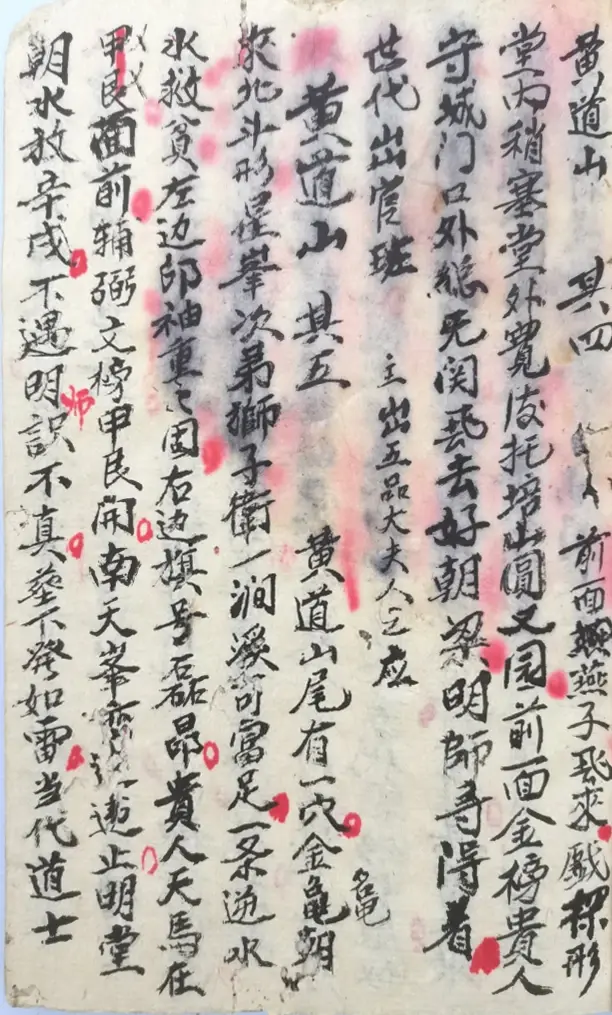 黄道山 其四 前面 燕子飛來戲梁形
堂内稍塞堂外寬後托培山圓又园前面金榜貴人
守城门口外総无関飛去好朝梁明師寻得着
世代出官班 主出五品大夫人之应
黄道山 其五 黄道山尾有一穴金龟朝
來北斗形星峯次弟獅子衛一澗溪可富足一条逆水
水救貧左边郎袖重々困右边旗号磊昂貴人天馬在
甲艮面前輔弼文榜甲艮開南天峯 遮止明堂
朝水放辛戌不遇明师識不真塟下発如雷当代道士